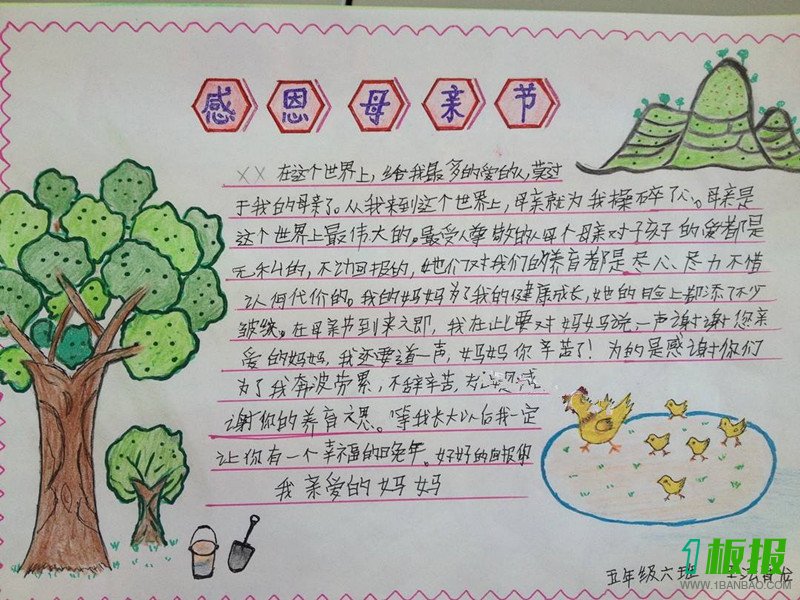 感恩母亲节
××在这个世界上,给我最多的爱的人莫过
于我的母亲了。从我来到这个世界上,母亲就为我操碎了心。母亲是
这个世界上最伟大的。最受人尊敬的人每个母亲对于孩子的爱都是
无私的,不功回报的,她们对我们的养育都是尽心、尽力不惜
认何代价的。我的妈妈为了我的健康成长,她的脸上都添了不少
皱纹。在母亲节到来之即,我在此要对妈妈说一声谢谢您亲
爱的妈妈,我还要道一声,妈妈你辛苦了!为的是感谢你们
为了我奔波劳累,不辞辛苦,
谢你的养育之恩。等我长大以后我一定
让你有一个幸福的晚年。好好的回报你
我亲爱的妈妈
五年级六班
1板报
WWW.1BANBAO.COM